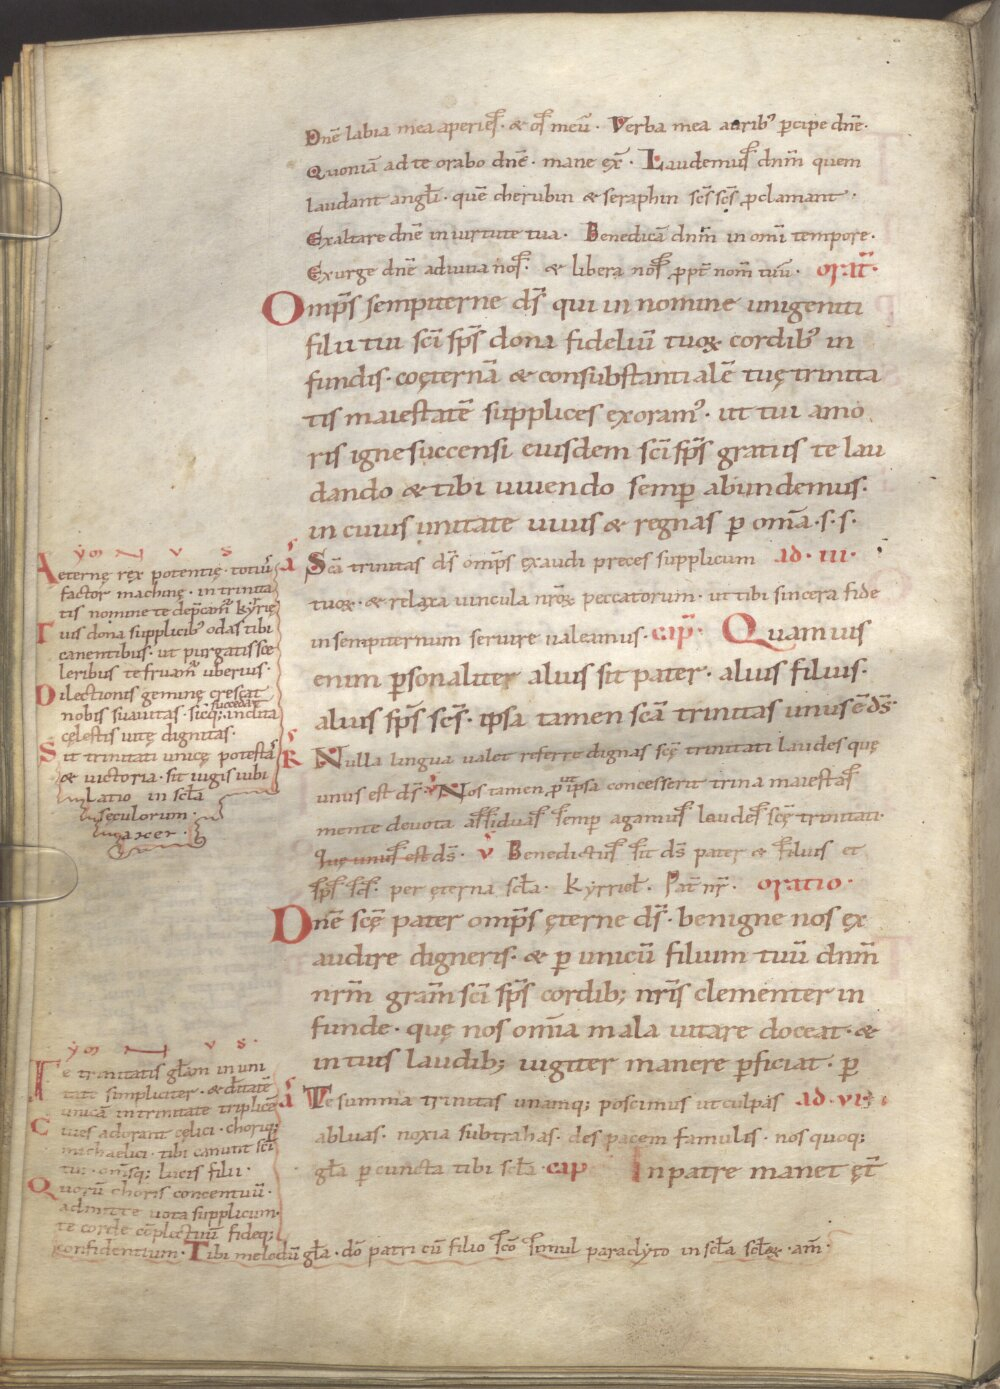 Dnē labia mea aperieſ · & oſ meū · Verba mea aurib' pcipe dnē ·
Quoniā ad te orabo dnē · mane ex̄ · Laudemuſ dnm̄ quem
laudant angłi · quē cherubin & seraphin sc̄s sc̄s pclamant ·
Exaltare dnē in uirtute tua · Benedicā dnm̄ in omī tempore ·
Exurge dnē adiuua noſ · & libera noſ ppt̄ nom̄ tuū · orat̄ ·
Omp̄s sempiterne ds̄ qui in nomine unigeniti
filii tui sc̄i sp̄s dona fideliū tuoꝝ cordib' in
fundis · coęternā & consubstantialē tuę trinita
tis maiestatē supplices exoram' · ut tui amo
ris igne succensi eiusdem sc̄i sp̄s gratiis te lau
dando & tibi uiuendo semp abundemus ·
in cuius unitate uiuis & regnas p om̄a · s · s ·
a Sc̄a trinitas ds̄ omp̄s exaudi preces supplicum ad · III ·
tuoꝝ · & relaxa uincula nr̄oꝝ peccatorum · ut tibi sincera fide
in sempiternum seruire ualeamus · cap̄ · Quamuis
enim psonaliter alius sit pater · alius filius ·
alius sp̄s sc̄s · ipsa tamen sc̄a trinitas unus ē ds̄ ·
R Nulla lingua ualet referre dignas sc̄ę trinitati laudes quę
unus est ds̄ · v Nos tamen p ut ipsa concesserit trina maiestaſ
mente deuota aſſiduaſ ſemp agamuſ laudeſ sc̄ę trinitati ·
Quę unuſ est ds̄ · v Benedictuſ ſit ds̄ pater & filius et
sp̄ſ sc̄ſ · per ęterna scła · Kyrrieł · Pat̄ nr̄ · oratio ·
Dnē sc̄ę pater omp̄s ęterne ds̄ · benigne nos ex
audire digneris · & p unicū filium tuū dnm̄
nrm̄ gram̄ sc̄i sp̄s cordib; nr̄is clementer in
funde · quę nos om̄ia mala uitare doceat · &
in tuis laudib; iugiter manere pficiat · p
a Te summa trinitas unamq; poscimus ut culpas ad · VI ·
abluas · noxia subtrahas · des pacem famulis · nos quoq;
gła p cuncta tibi scła · cap In patre manet ęt̄
ymNvs
Aeternę rex potentię · totiu'
factor machinę · in trinita
tis nomine te depcam̄ kyrie
Tuis dona supplicib' odas tibi
canentibus · ut purgatis sce
leribus te fruam̄ uberius ·
Dilectionis geminę crescat
nobis suauitas · sicq; inclita
succedat
cęlestis uitę dignitas ·
Sit trinitati unicę potestas
& uictoria · sit iugis iubi
latio in scła
seculorum ·
amen ·
ymNvs ·
Te trinitatis głam in uni
tate simpliciter · & ditatē
unicā in trinitate triplicē
Ciues adorant cęlici · choriq;
michaelici · tibi canunt sc̄i
tui · omsq; lucis filii ·
Quorū choris concentuū ·
admitte uota supplicum ·
te corde cōplectiuū fideq;
confidentium · Tibi melodū gła · dō patri cū filio ſc̄o ſimul paraclyto in scła scłoꝝ · am̄ ·